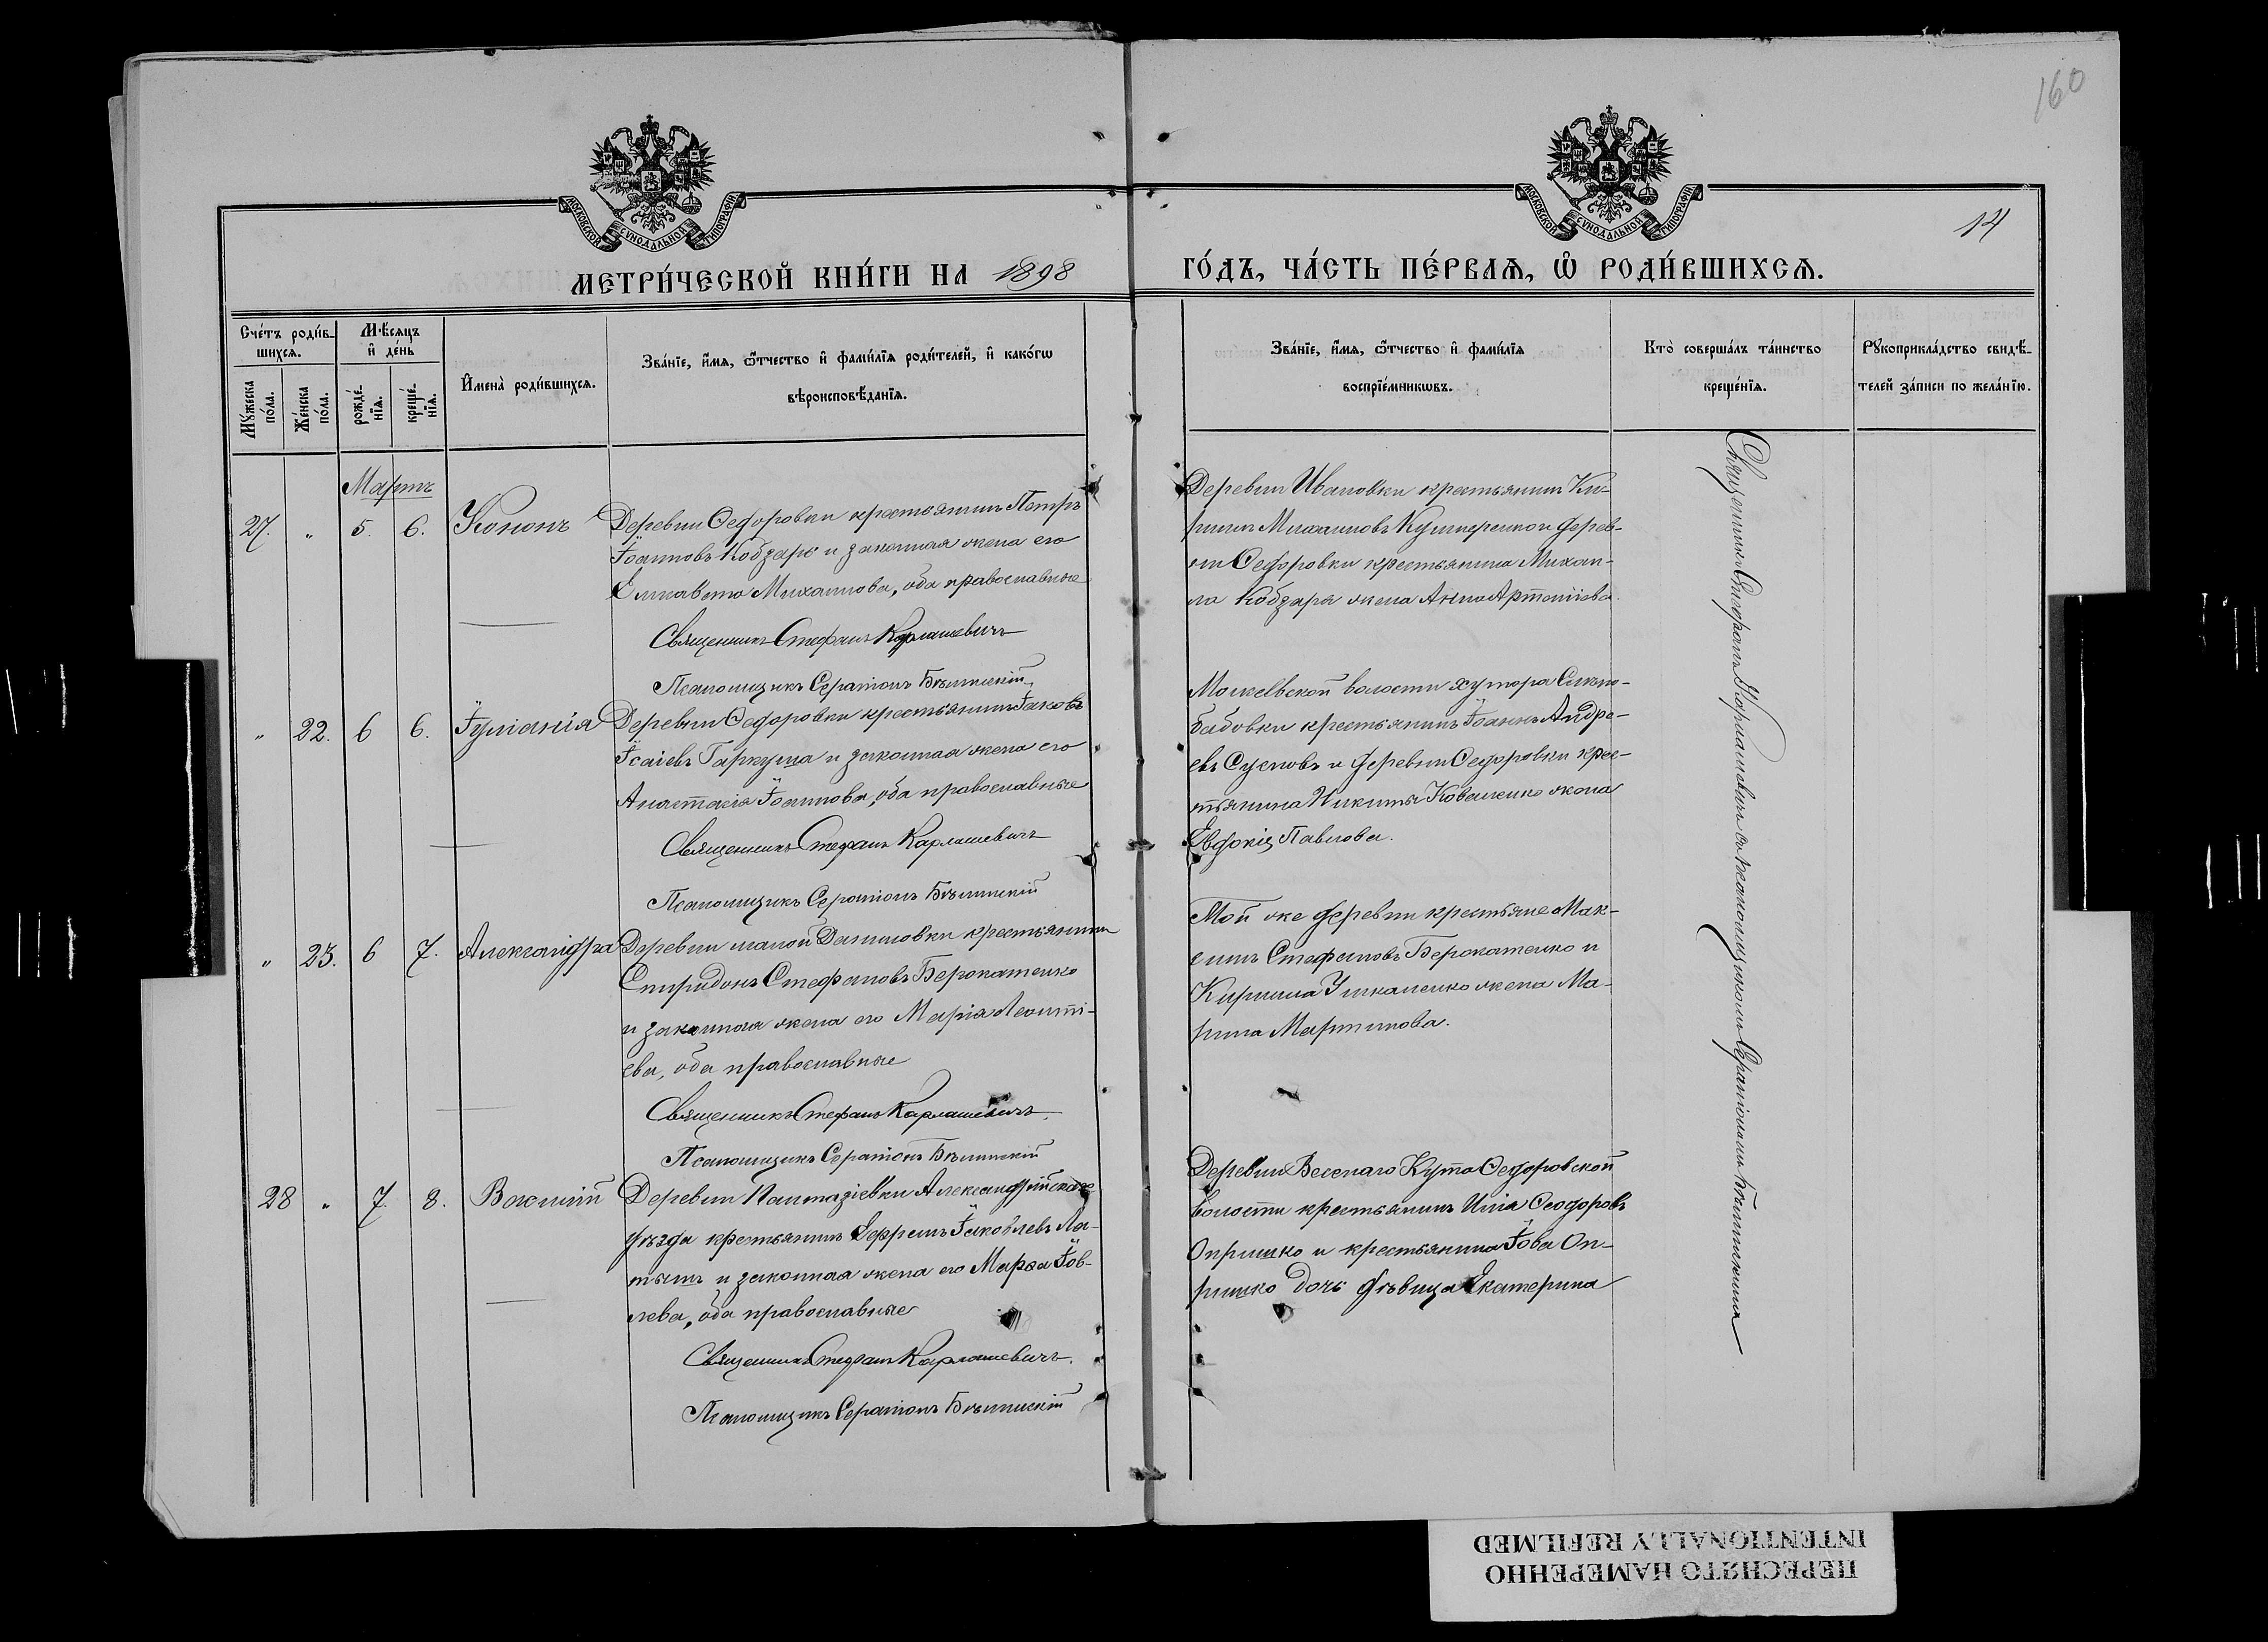 160
МОСКОВСКОЙ СѴНОДАЛЬНОЙ ТИПОГРАФІИ
МОСКОВСКОЙ СѴНОДАЛЬНОЙ ТИПОГРАФІИ
14
МЕТРИ́ЧЕСКОЙ КНИ́ГИ НА 1898
ГО́ДЪ, ЧА́СТЬ ПЕ́РВАѦ, Ѡ РОДИ́ВШИХСѦ.
Сче́тъ роди́в-
шихсѧ.
Му́жеска по́ла.
Же́нска по́ла.
Мѣ́сѧцъ
и҆ де́нь
рожде́-
нїѧ.
креще́-
нїѧ.
И҆мена̀ роди́вшихсѧ.
Зва́нїе, и҆́мѧ, ѻ҆́тчество и҆ фами́лїѧ роди́телей, и҆ како́гѡ
вѣроисповѣ́данїѧ.
Зва́нїе, и҆́мѧ, ѻ҆́тчество и҆ фами́лїѧ
воспрїе́мникѡвъ.
Кто̀ соверша́лъ та́инство
креще́нїѧ.
Рꙋкоприкла́дство свидѣ́-
телей за́писи по жела́нїю.
Мартъ
27. " 5. 6. Кононъ
Деревни Ѳедоровки крестьянинъ Петръ
Іоанновъ Кобзарь и законная жена его
Елисавета Михаилова, оба православные
Священникъ Стефанъ Карлашевичъ
Псаломщикъ Серапіонъ Бѣлинскій
Деревни Ивановки крестьянинъ Ки-
риллъ Михаиловъ Кушнеренко и дерев-
ни Ѳедоровки крестьянина Михаи-
ла Кобзаря жена Анна Артеміева.
" 22. 6 6. Іуліанія
Деревни Ѳедоровки крестьянинъ Іаковъ
Ісаіевъ Гаркуша и законная жена его
Анастасія Іоаннова, оба православные
Священникъ Стефанъ Карлашевичъ
Псаломщикъ Серапіонъ Бѣлинскій
волости хутора
бабовки крестьянинъ Іоаннъ Андре-
евъ Сусловъ и деревни Ѳедоровки крес-
тьянина Никиты Коваленко жена
Евдокія Павлова.
" 23. 6 7. Александра
Деревни малой Даниловки крестьянинъ
Спиридонъ Стефановъ
и законная жена его Марія Леонті-
ева, оба православные
Священникъ Стефанъ Карлашевичъ.
Псаломщикъ Серапіонъ Бѣлинскій
Той же деревни крестьяне Мак-
симъ Стефановъ и
Кирилла жена Ма-
рина Мартинова.
28 " 7. 8. Василій
Деревни Пантазіевки Александрійскаго
уѣзда крестьянинъ Ефремъ Іаковлевъ Ла-
тышъ и законная жена его Марѳа Іов-
лева, оба православные
Священникъ Стефанъ Карлашевичъ.
Псаломщикъ Серапіонъ Бѣлинскій
Деревни Веселаго Кута Ѳедоровской
волости крестьянинъ Илія Ѳеодоровъ
Опришко и крестьянина Іова Оп-
ришко дочь дѣвица Екатерина
Священникъ Стефанъ Карлашевичъ съ псаломщикомъ Серапіономъ Бѣлинскимъ
ПЕРЕСНЯТО НАМЕРЕННО
INTENTIONALLY REFILMED